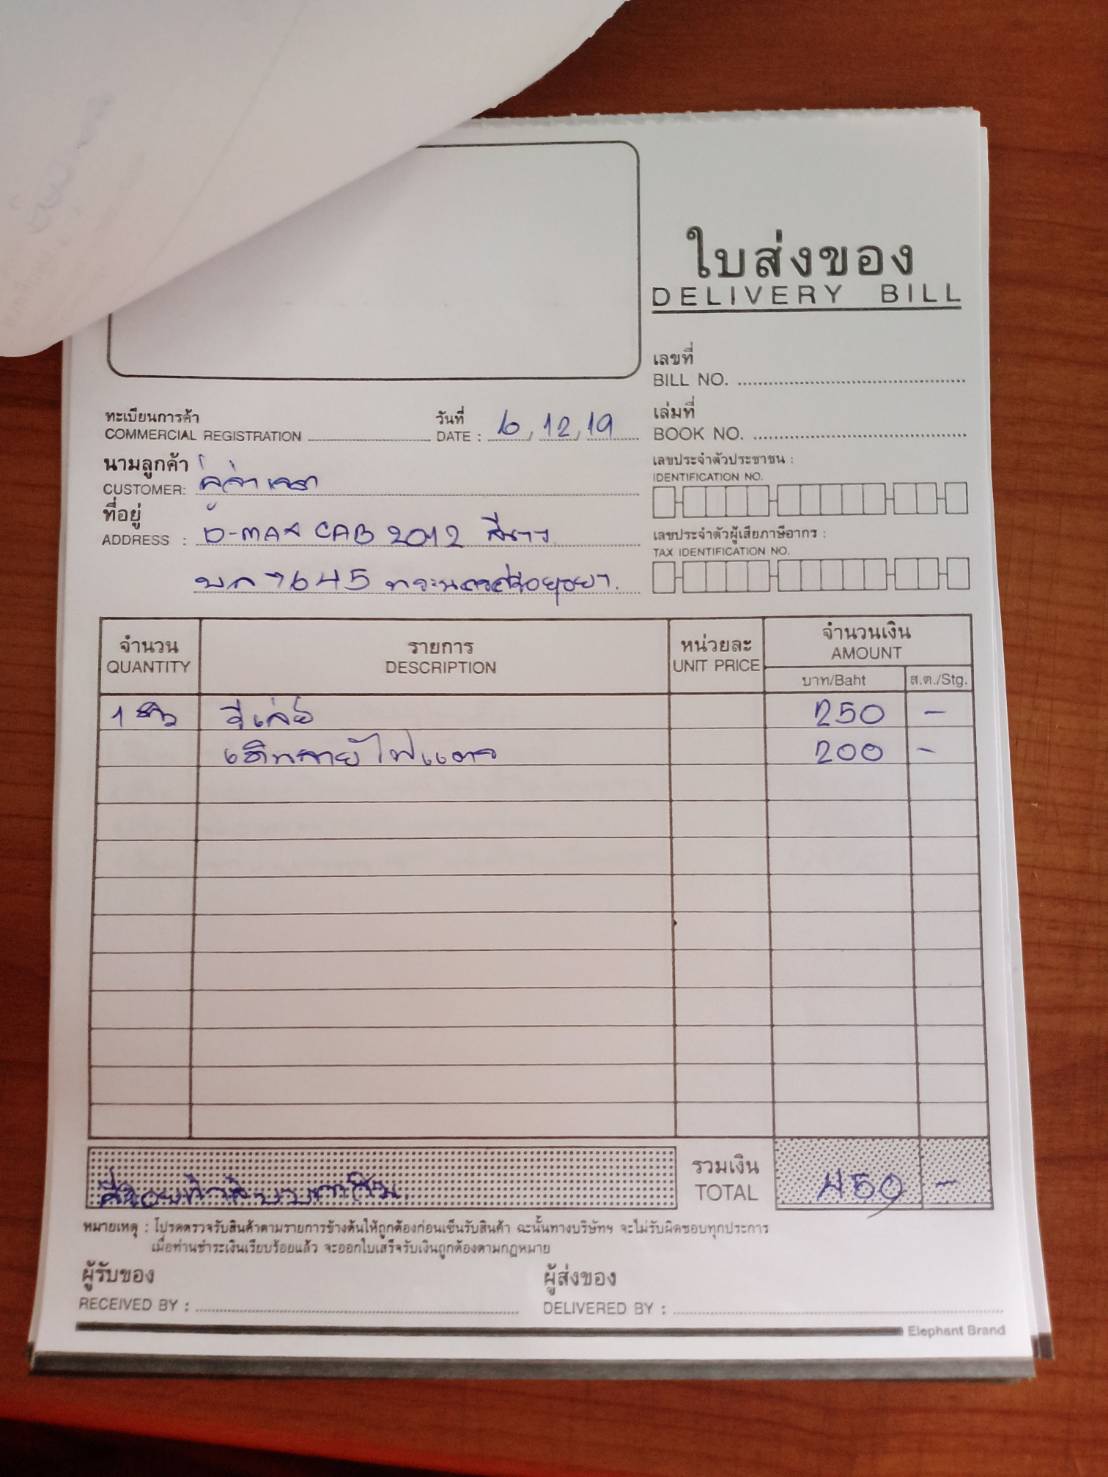 ใบส่งของ
DELIVERY BILL
เลขที่
BILL NO.
ทะเบียนการค้า
COMMERCIAL REGISTRATION
วันที่
DATE : 6, 12, 19
เล่มที่
BOOK NO.
นามลูกค้า
CUSTOMER:
เลขประจำตัวประชาชน :
IDENTIFICATION NO.
ที่อยู่
ADDRESS : D-MAX CAB 2012 สีขาว
เลขประจำตัวผู้เสียภาษีอากร :
TAX IDENTIFICATION NO.
7645 พระนครศรีอยุธยา
จำนวน
QUANTITY
รายการ
DESCRIPTION
หน่วยละ
UNIT PRICE
จำนวนเงิน
AMOUNT
บาท/Baht
ส.ต./Stg.
1 ตัว รีเลย์ 250 -
เดินสายไฟแตร 200 -
รวมเงิน
TOTAL
450 -
สี่ร้อยห้าสิบบาทถ้วน
หมายเหตุ : โปรดตรวจรับสินค้าตามรายการข้างต้นให้ถูกต้องก่อนเซ็นรับสินค้า ฉะนั้นทางบริษัทฯ จะไม่รับผิดชอบทุกประการ
เมื่อท่านชำระเงินเรียบร้อยแล้ว จะออกใบเสร็จรับเงินถูกต้องตามกฎหมาย
ผู้รับของ
RECEIVED BY :
ผู้ส่งของ
DELIVERED BY :
Elephant Brand